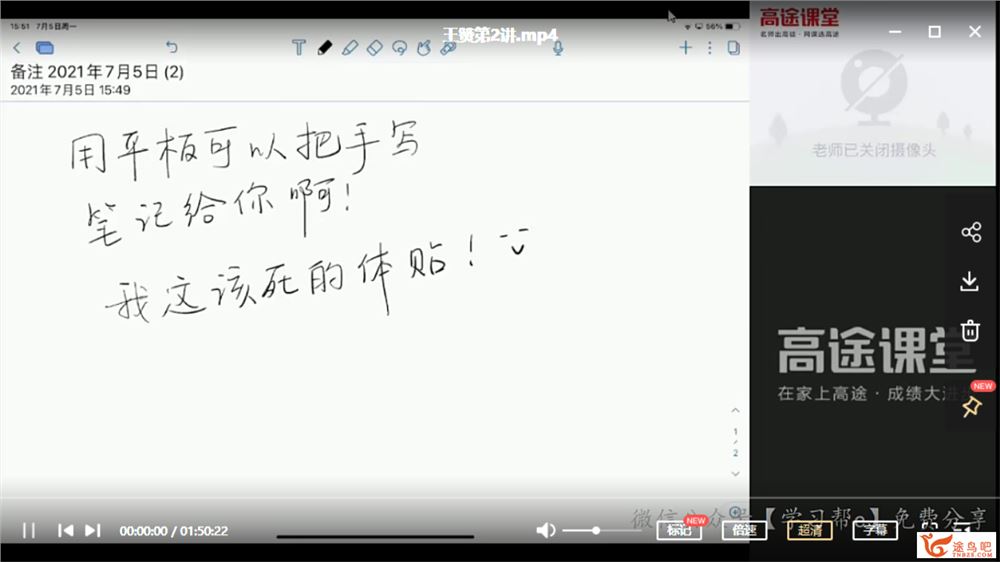 15:51 7月5日周一
56%
王赞第2讲.mp4
备注 2021年7月5日 (2)
2021年7月5日 15:49
用平板可以把手写
笔记给你啊！
我这该死的体贴！
1
/
2
高途课堂
名师出高徒·网课选高途
老师已关闭摄像头
高途课堂
在家上高途·成绩大进步
NEW
00:00:00 / 01:50:22
标记
NEW
倍速
超清
字幕
【学习帮e】免费分享
途鸟吧
TNBZS.COM